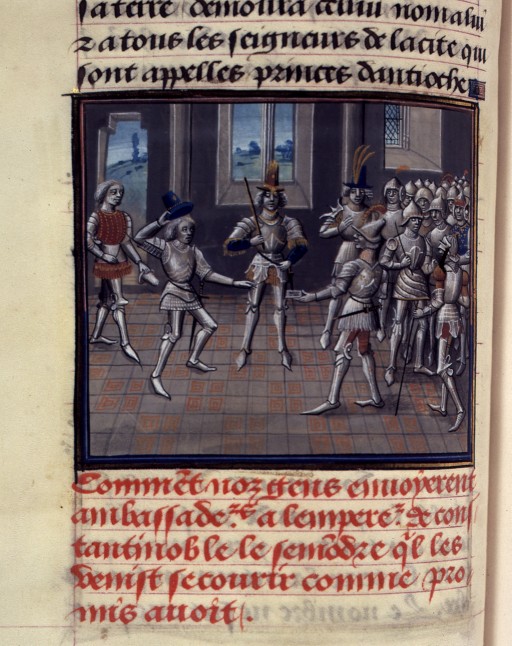 sa terre demoura celui nom a lui
⁊ a tous les seigneurs de la cite qui
sont appelles princes dantioche
Comment noz gens envoyerent
ambassade⁊s a lempere⁊ de cons
tantinoble le semōdre ql̄ les
venist secourir comme pro
mis avoit.